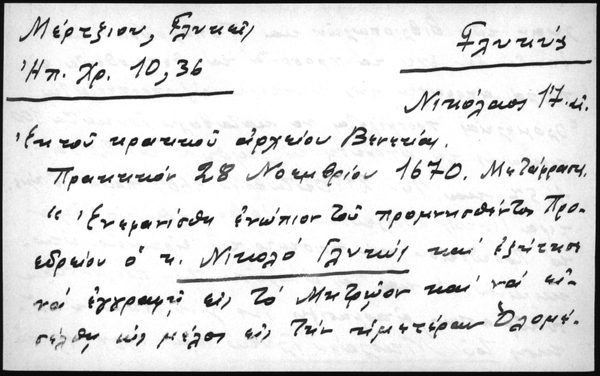 Μέρτζιου, Γλυκεῖς
Γλυκύς
Ἠπ. Χρ. 10, 36
Νικόλαος 17
Ἐκ τοῦ κρατικοῦ ἀρχείου Βενετίας.
Πρακτικόν 28 Νοεμβρίου 1670. Μετάφρασις.
"Ἐνεφανίσθη ἐνώπιον τοῦ προμνησθέντος Προ-
εδρείου ὁ κ. Νικολό Γλυκύς καί ἐζήτησε
νά ἐγγραφῇ εἰς τό Μητρῷον καί νά εἰ-
σέλθῃ ὡς μέλος εἰς τήν ἡμετέραν Ὁλομέ-